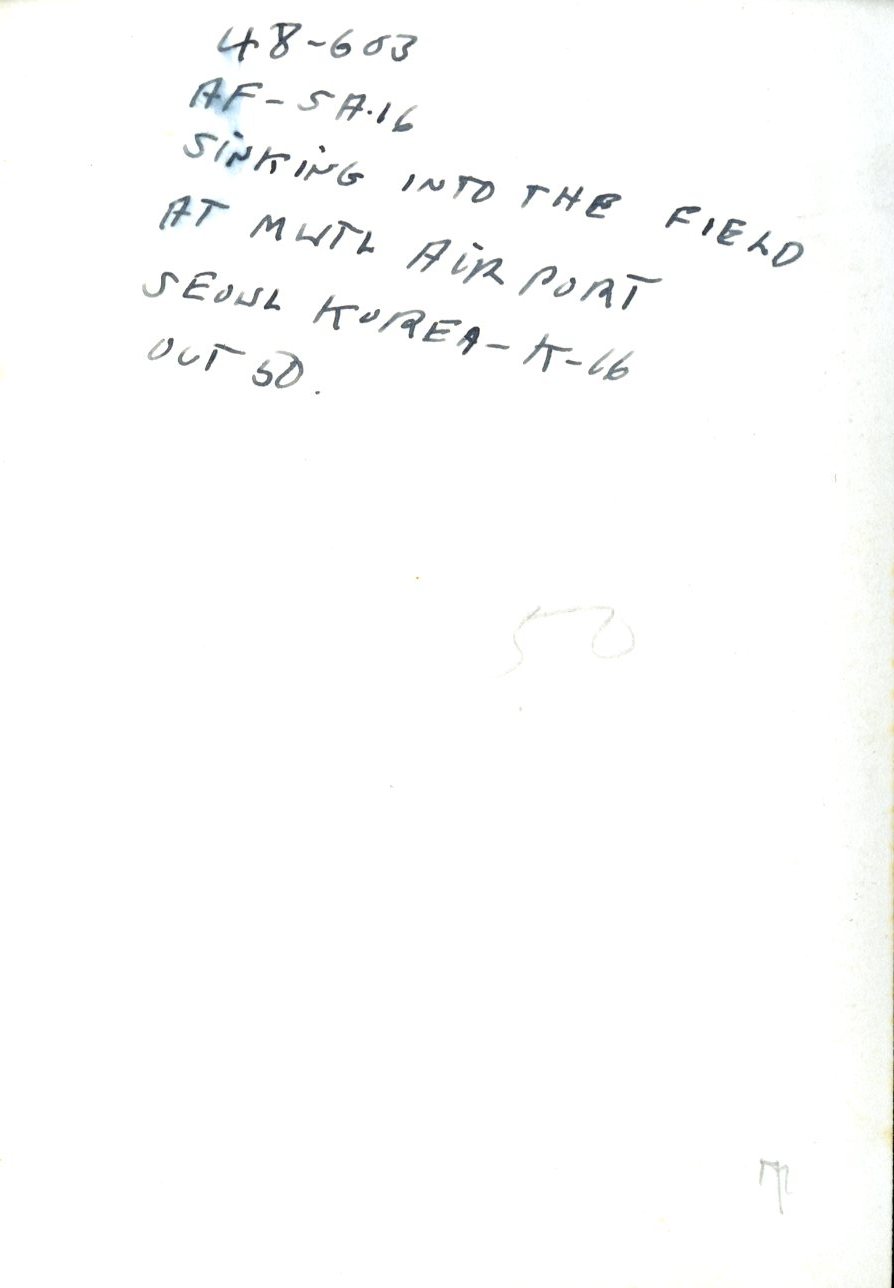 48-603
AF-SA.16
SINKING INTO THE FIELD
AT MWTL AIRPORT
SEOUL KOREA-K-16
OCT 50.
50